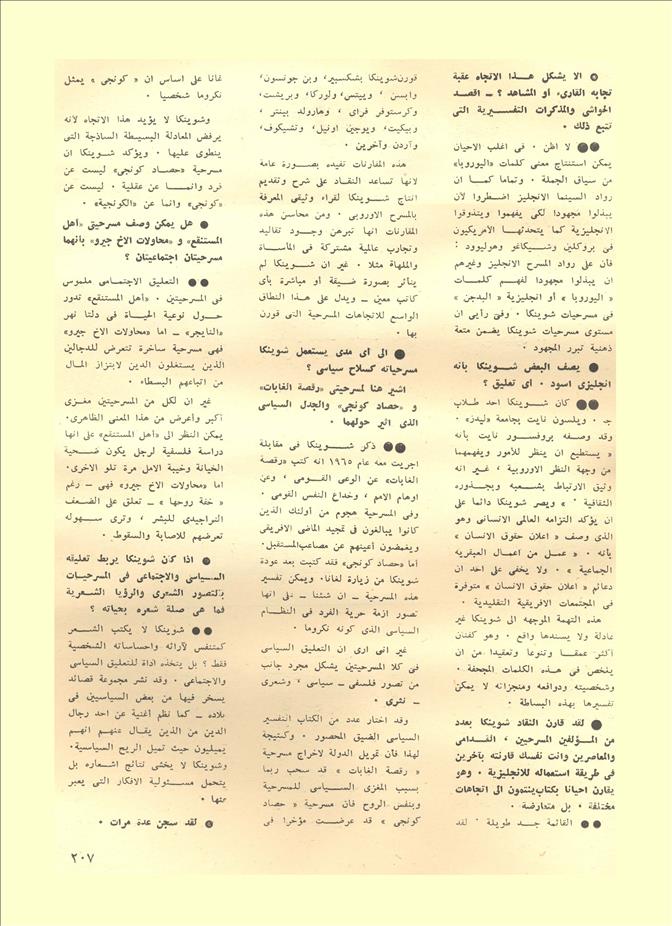 ● الا يشكل هـــذا الاتجاه عقبة
تجابه القارىء أو المشاهد ؟ ــ اقصد
الحواشى والمذكرات التفسـيرية التى
تتبع ذلك ٠
●● لا اظن ٠ فى اغلب الاحيان
يمكن استنتاج معنى كلمات «اليوروبا»
من سياق الجملة ٠ وتماما كمـا ان
رواد السينما الانجليز اضـطروا لأن
يبذلوا مجهودا لكى يفهموا ويتذوقوا
الانجليزية كما يتحدثهـا الأمريكيون
فى بروكلين وشــيكاغو وهوليوود :
فأن على رواد المسرح الانجليز وغيرهم
ان يبذلوا مجهودا لفهـم كلمــات
« اليوروبا » أو انجليزية « البدجن »
فى مسرحيات شوينكا ٠ وفى رأيى ان
مستوى مسرحيات شوينكا يضمن متعة
ذهنية تبرر المجهود ٠
● يصف البعض شــوينكا بأنه
انجليزى اسود ٠ اى تعليق ؟
●● كان شـوينكا احد طـلاب
جـ ٠ ويلسون نايت بجامعة «ليدز» ٠
وقد وصفه بروفسـور نايت بأنه
« يستطيع ان ينظر للأمور ويفهمهما
من وجهة النظر الاوروبية ، غير انه
وثيق الارتباط بشـــعبه وبجـذوره
الثقافية » ٠ ويصر شوينكا دائما على
ان يؤكد التزامه العالمى الانسانى وهو
الذى وصف « اعلان حقوق الانسان »
بأنه ٠ « عمـل من اعمـال العبقرية
الجماعية » ٠ ولا يخفى على احد ان
دعائم « اعلان حقوق الانسان » متوفرة
فى المجتمعات الافريقية التقليدية ٠
هذه التهمة الموجهه الى شوينكا غير
عادلة ولا يسندها واقع ٠ وهو كفنان
أكثر عمقـا وتنوعا وتعقيدا من ان
يلخص فى هـذه الكلمات المجحفة ٠
وشخصيته ودوافعه ومنجزاته لا يمكن
تفسيرها بهذه البساطة ٠
● لقد قارن النقاد شوينكا بعدد
من المـؤلفين المسرحيين ، القـدامى
والمعاصرين وانت نفسك قارنته بآخرين
فى طريقة استعماله للانجليزية ٠ وهو
يقارن احيانا بكتاب ينتمون الى اتجاهات
مختلفة ٠ بل متعارضة ٠
●● القائمة جــد طويلة ٠ لقد
قورن شوينكا بشكسبير، وبن جونسون،
وابسن ، وييتس، ولوركا، وبريشت،
وكرستوفر فراى ، وهارولد بينتر ،
وبيكيت، ويوجين اونيل، وتشيكوف،
وآردن وآخرين ٠
هذه المقارنات تفيده بصـورة عامة
لانها تساعد النقاد على شرح وتقديم
انتاج شــوينكا لقراء وثيقى المعرفة
بالمسرح الاوروبى ٠ ومن محاسن هذه
المقارنات انها تبرهن وجـود تقاليد
وتجارب عالمية مشتركة فى المأسـاة
والملهاة مثلا ٠ غير ان شــوينكا لم
يتأثر بصورة ضيقة أو مباشرة بأى
كاتب معين ــ ويدل على هـذا النطاق
الواسع للاتجاهات المسرحية التى قورن
بها ٠
● الى أى مدى يستعمل شوينكا
مسرحياته كسلاح سياسى ؟
اشير هنا لمسرحيتى «رقصة الغابات»
و «حصاد كونجى» والجدل السياسى
الذى اثير حولهما ٠
●● ذكر شــوينكا فى مقابلة
اجريت معه عام ١٩٦٥ انه كتب «رقصة
الغابات» عن الوعى القـومى ، وعن
اوهام الامم ، وخداع النفس القومى ٠
وفى المسرحية هجوم من أولئك الذين
كانوا يبالغون فى تمجيد الماضى الافريقى
ويغمضون أعينهم عن مصاعب المستقبل.
أما «حصاد كونجى» فقد كتبت بعد عودة
شوينكا من زيارة لغانا. ويمكن تفسير
هذه المسرحية ــ ان شئنا ــ على انها
تصور ازمة حرية الفرد فى النظـام
السياسى الذى كونه نكروما ٠
غير انى ارى ان التعليق السياسى
فى كلا المسرحيتين يشكل مجرد جانب
من تصور فلسفى ــ سياسى ، وشعرى
ــ نثرى ٠
وقد اختار عدد من الكتاب التفسير
السياسى الضيق المحصور ٠ وكنتيجة
لهذا فأن تمويل الدولة لاخراج مسرحية
« رقصة الغابات » قد سحب ربما
بسبب المغزى السـياسى للمسرحية
وبنفس الروح فأن مسرحية « حصاد
كونجى » قد عرضـت مؤخرا فى
غانا على اساس ان « كونجى » يمثل
نكروما شخصيا ٠
وشوينكا لا يؤيد هذا الاتجاه لأنه
يرفض المعادلة البسيطة الساذجة التى
ينطوى عليها ٠ ويؤكد شـوينكا ان
مسرحية «حصـاد كونجى» ليست عن
فرد وانمــا عن عقلية ٠ ليست عن
«كونجى» وانما عن «الكونجية» ٠
● هل يمكن وصف مسرحيتى «أهل
المستنقع» و «محاولات الاخ جيرو» بأنهما
مسرحيتان اجتماعيتان ؟
●● التعليق الاجتمـاعى ملموس
فى المسرحيتين ٠ «أهـل المستنقع» تدور
حـول نوعية الحيـاة فى دلتا نهر
«النايجر» ــ اما «محاولات الاخ جيرو»
فهى مسرحية ساخرة تتعرض للدجالين
الذين يستغلون الدين لابتزاز المـال
من اتباعهم البسطاء ٠
غير ان لكل من المسرحيتين مغـزى
أكبر وأعرض من هذا المعنى الظاهرى.
يمكن النظر الى «أهل المستنقع» على انها
دراسة فلسفية لرجل يكون ضــحية
الخيانة وخيبة الامل مرة تلو الاخرى.
اما «محاولات الاخ جيرو» فهى ــ رغم
« خفة روحها » ــ تعلق على الضـعف
التراجيدى للبشر ، وترى سـهوله
تعرضهم للاصابة والسقوط ٠
● اذا كان شوينكا يربط تعليقه
السـياسى والاجتماعى فى المسرحيـات
بالتصور الشعرى والرؤيا الشعرية
فما هى صلة شعره بحياته ؟
●● شوينكا لا يكتب الشـعر
كمتنفس لآرائه واحساساته الشخصية
فقط ؟ بل يتخذه اداة للتعليق السياسى
والاجتماعى ٠ وقد نشر مجموعة قصائد
يسخر فيها من بعض السياسيين فى
بلاده ــ كما نظم أغنية عن احد رجال
الدين من الذين يقال عنهـم انهـم
يميلون حيث تميل الريح السياسية.
وشوينكا لا يخشى نتائج اشعاره بل
يتحمل مسئولية الافكار التى يعبر
عنها ٠
● لقد سجن عدة مرات ٠
٢٠٧